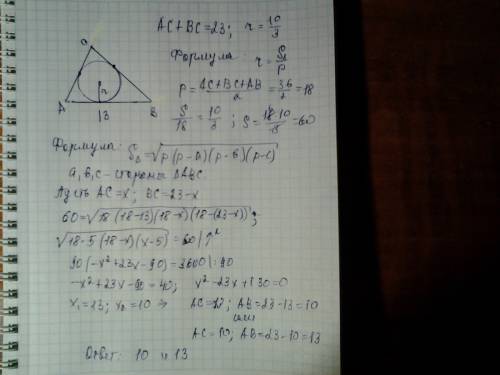 AC+BC=23; r=10/3
Формула: r=S/p
p=(AC+BC+AB)/2=36/2=18
S/18=10/3; S=18·10/3=60
C
r
A 13 B
Формула: S△=√(p(p-a)(p-b)(p-c))
a,b,c-стороны △ABC.
Пусть AC=x; BC=23-x
60=√(18(18-13)(18-x)(18-(23-x)));
√(18·5(18-x)(x-5))=60|↑²
90(-x²+23x-90)=3600|:90
-x²+23x-90=40; x²-23x+130=0
x₁=13; x₂=10 ⇒ AC=13; AB=23-13=10
или
AC=10; AB=23-10=13
Ответ: 10 и 13